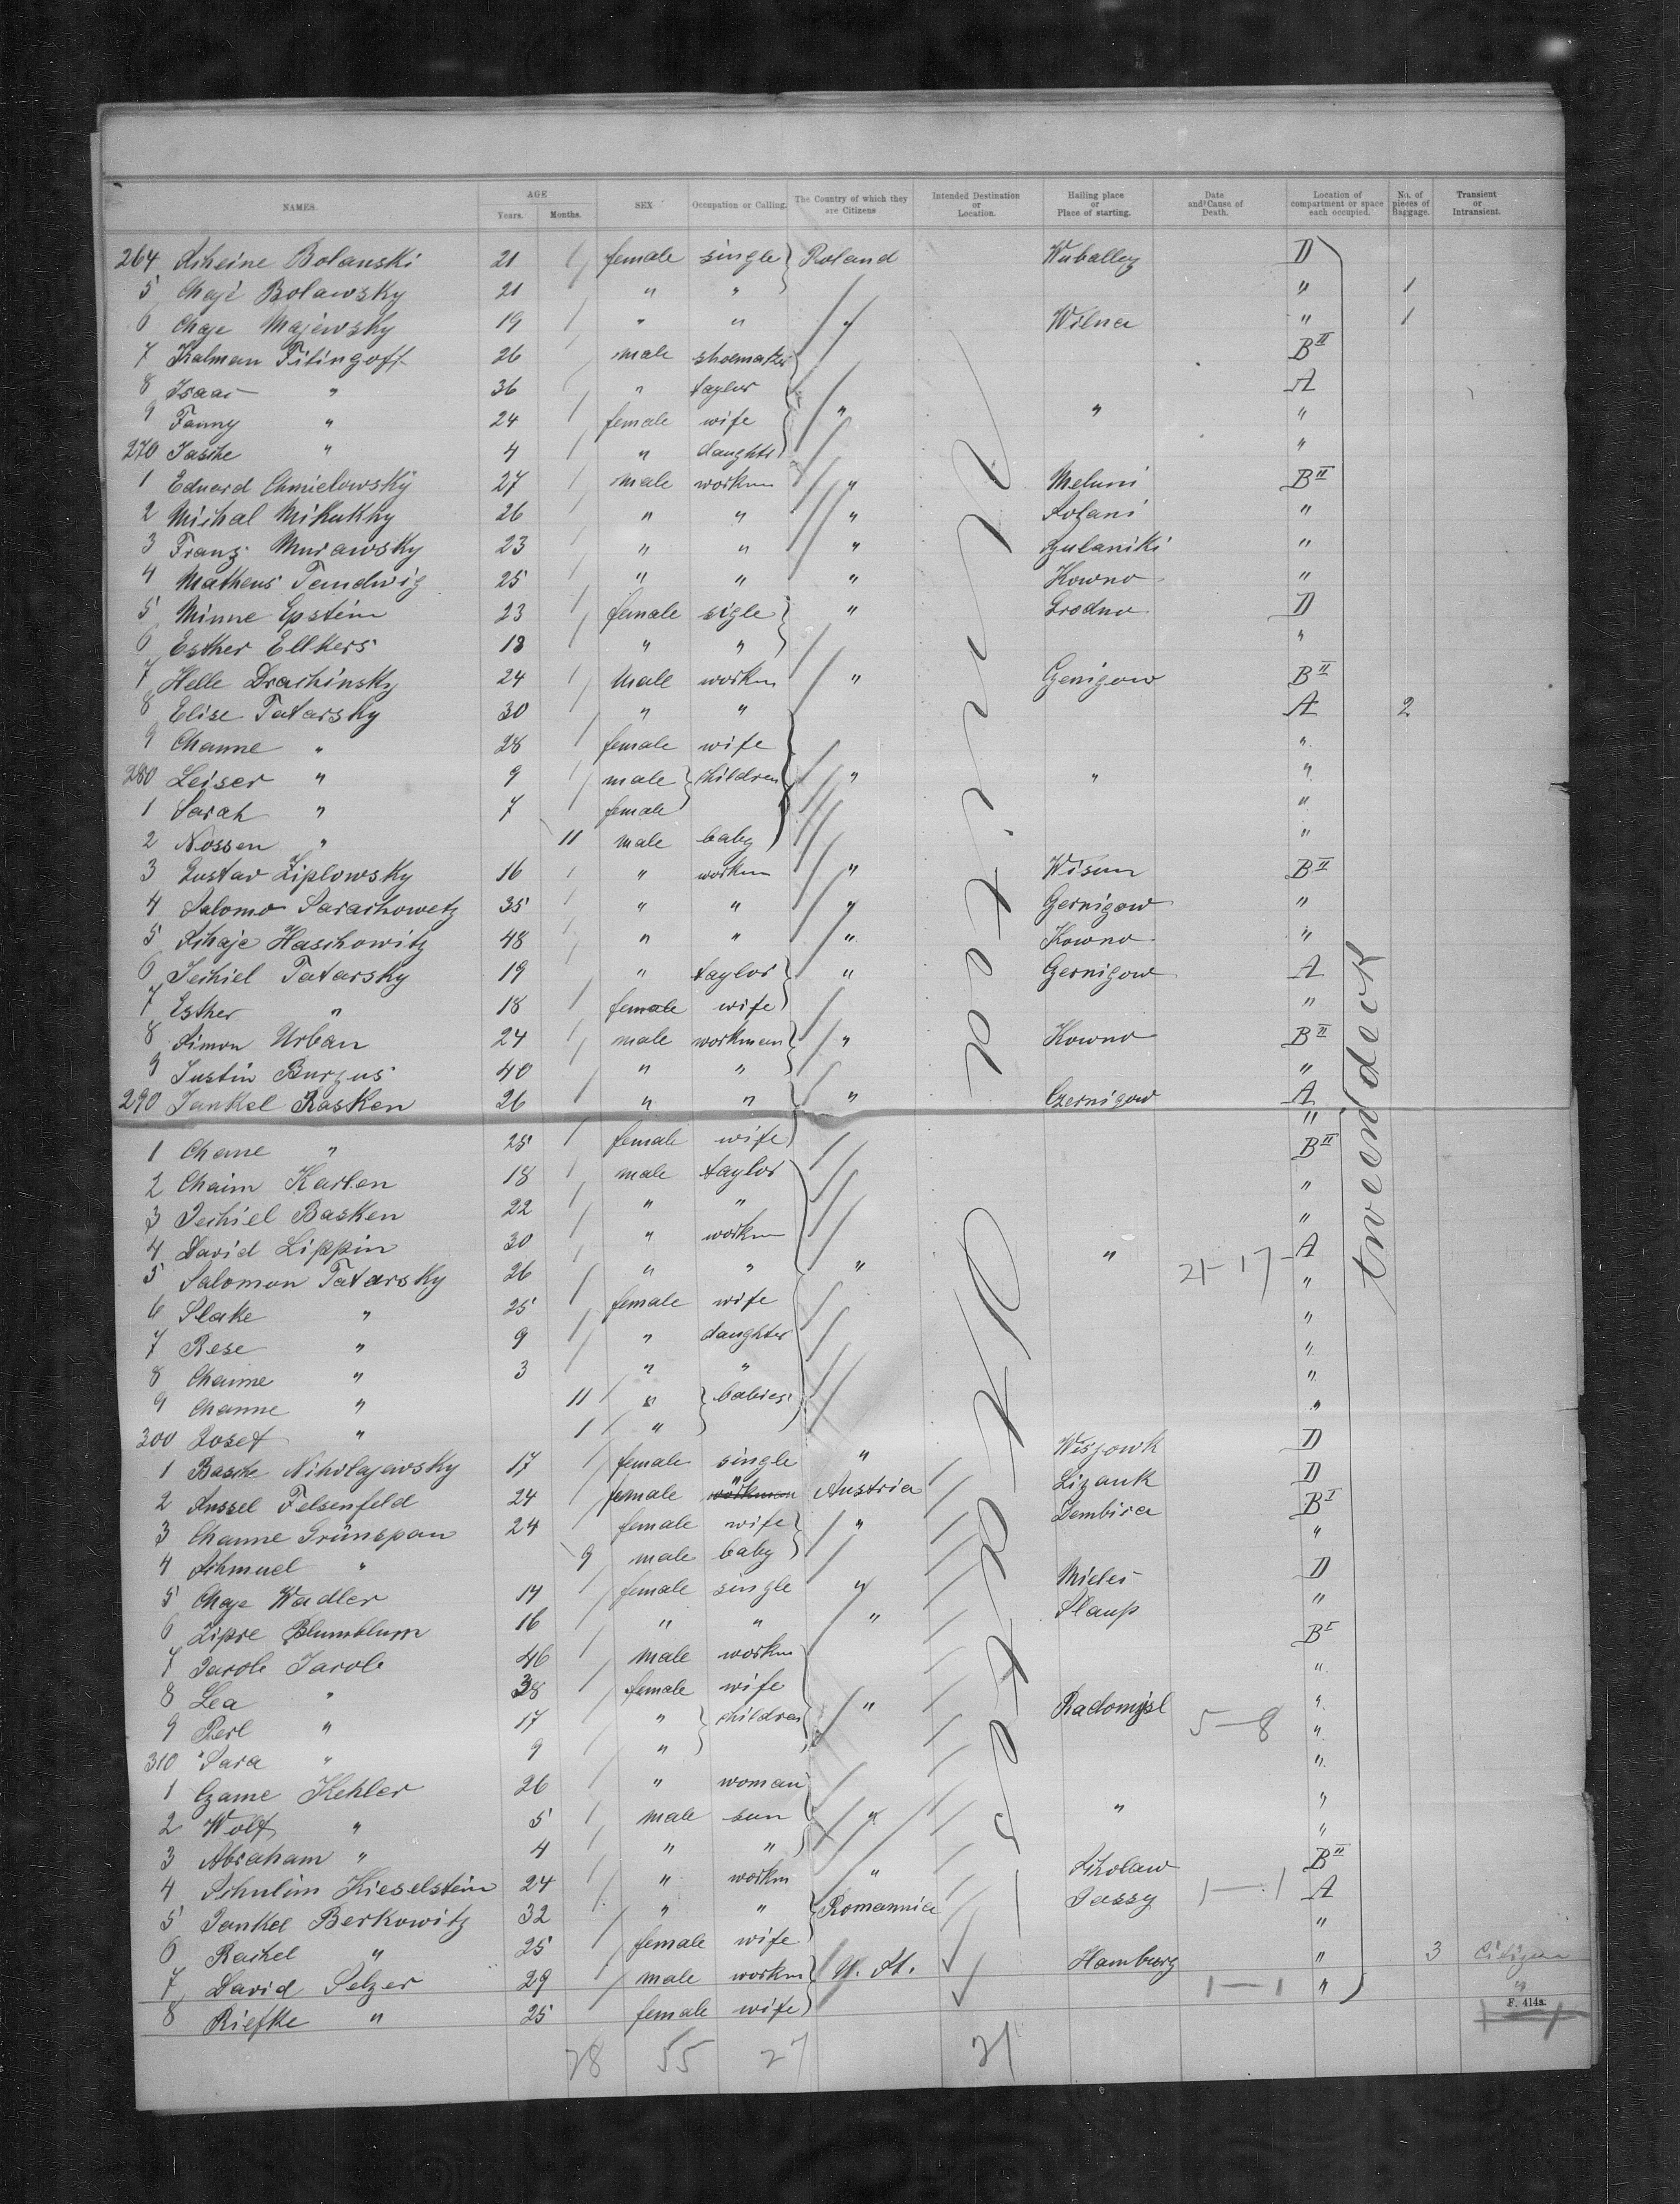 NAMES. AGE Years. Months. SEX Occupation or Calling. The Country of which they are Citizens Intended Destination or Location. Hailing place or Place of starting. Date and Cause of Death. Location of compartment or space each occupied. No. of pieces of Baggage. Transient or Intransient.
264 Scheine Bolanski 21 female single Poland Wuballey D
5 Chaje Bolawsky 21 " " " 1
6 Chaje Majewsky 19 " " " Wilna " 1
7 Kalman Fitingoff 26 male shoemaker B II
8 Isaac " 36 " taylor A
9 Fanny " 24 female wife " " "
270 Tasche " 4 " daught "
1 Eduard Chmielowsky 27 male workm " Meluni B II
2 Michal Mikukky 26 " " "
3 Franz Murawsky 23 " " " "
4 Matheus 25 " " " Kowno "
5 Minne Epstein 23 female sigle " Grodno D
6 Esther Elkers 18 " " "
7 Helle Drachinsky 24 Male workm " Genigow B II
8 Elise Tatarsky 30 " " A 2
9 Channe " 28 female wife "
280 Leiser " 9 male children " " "
1 Sarah " 7 female "
2 Nossen " 11 male baby "
3 Gustav Ziplowsky 16 " workm " Wisun B II
4 Salomo Sarachowetz 35 " " " Gernigow "
5 Schaje Haschowitz 48 " " " Kowno "
6 Jechiel Tatarsky 19 " taylor " Gernigow A
7 Esther " 18 female wife "
8 Simon Urban 24 male workman " Kowno B II
9 Justin Burzus 40 " " "
290 Jankel Rasken 26 " " " Czernigow A
"
1 Chane " 25 female wife B II
2 Chaim Karlen 18 male taylor "
3 Jechiel Basken 22 " " "
4 David Lippin 30 " workm " A
5 Salomon Tatarsky 26 " " " 21-17 "
6 Slake " 25 female wife "
7 Rese " 9 " daughter "
8 Channe " 3 " " "
9 Channe " 11 " babies "
300 Josef " 1 "
1 Basche Nikolajewsky 17 female single " Wisjowk D
2 Anssel Felsenfeld 24 female " workman Austria Lizank D
3 Channe Grünspan 24 female wife " Dembica B I
4 Schmuel " 9 male baby "
5 Chaje Wadler 17 female single " Mieles D
6 Zipre Blumblum 16 " " " Slaup "
7 Jacob Jacob 46 male workm B I
8 Lea " 38 female wife "
9 Perl " 17 " children " Radomysl "
310 Sara " 9 " 5-8 "
1 Czame Kehler 26 " woman "
2 Wolf " 5 male son " " "
3 Abraham " 4 " " "
4 Schulim Kieselstein 24 " workm " Scholaw B II
5 Jankel Berkowitz 32 " " Romannia Jassy 1-1 A
6 Rachel " 25 female wife "
7 David Selzer 29 male workm U. St. Hamburg " 3 Citizen
8 Riefke " 25 female wife 1-1 " "
F. 414a.
28 55 27 21
tweendeck